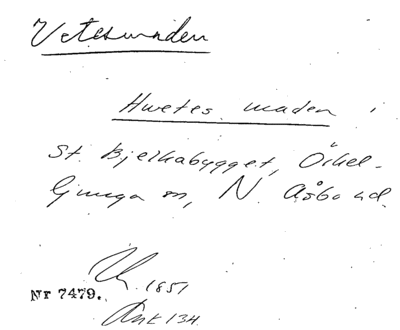 Vetesmaden
Hwetes maden i
St. Bjerkabygget, Örkel-
ljunga sn, N. Åsbo hd.
1851
Nr 7479.
Ank 134